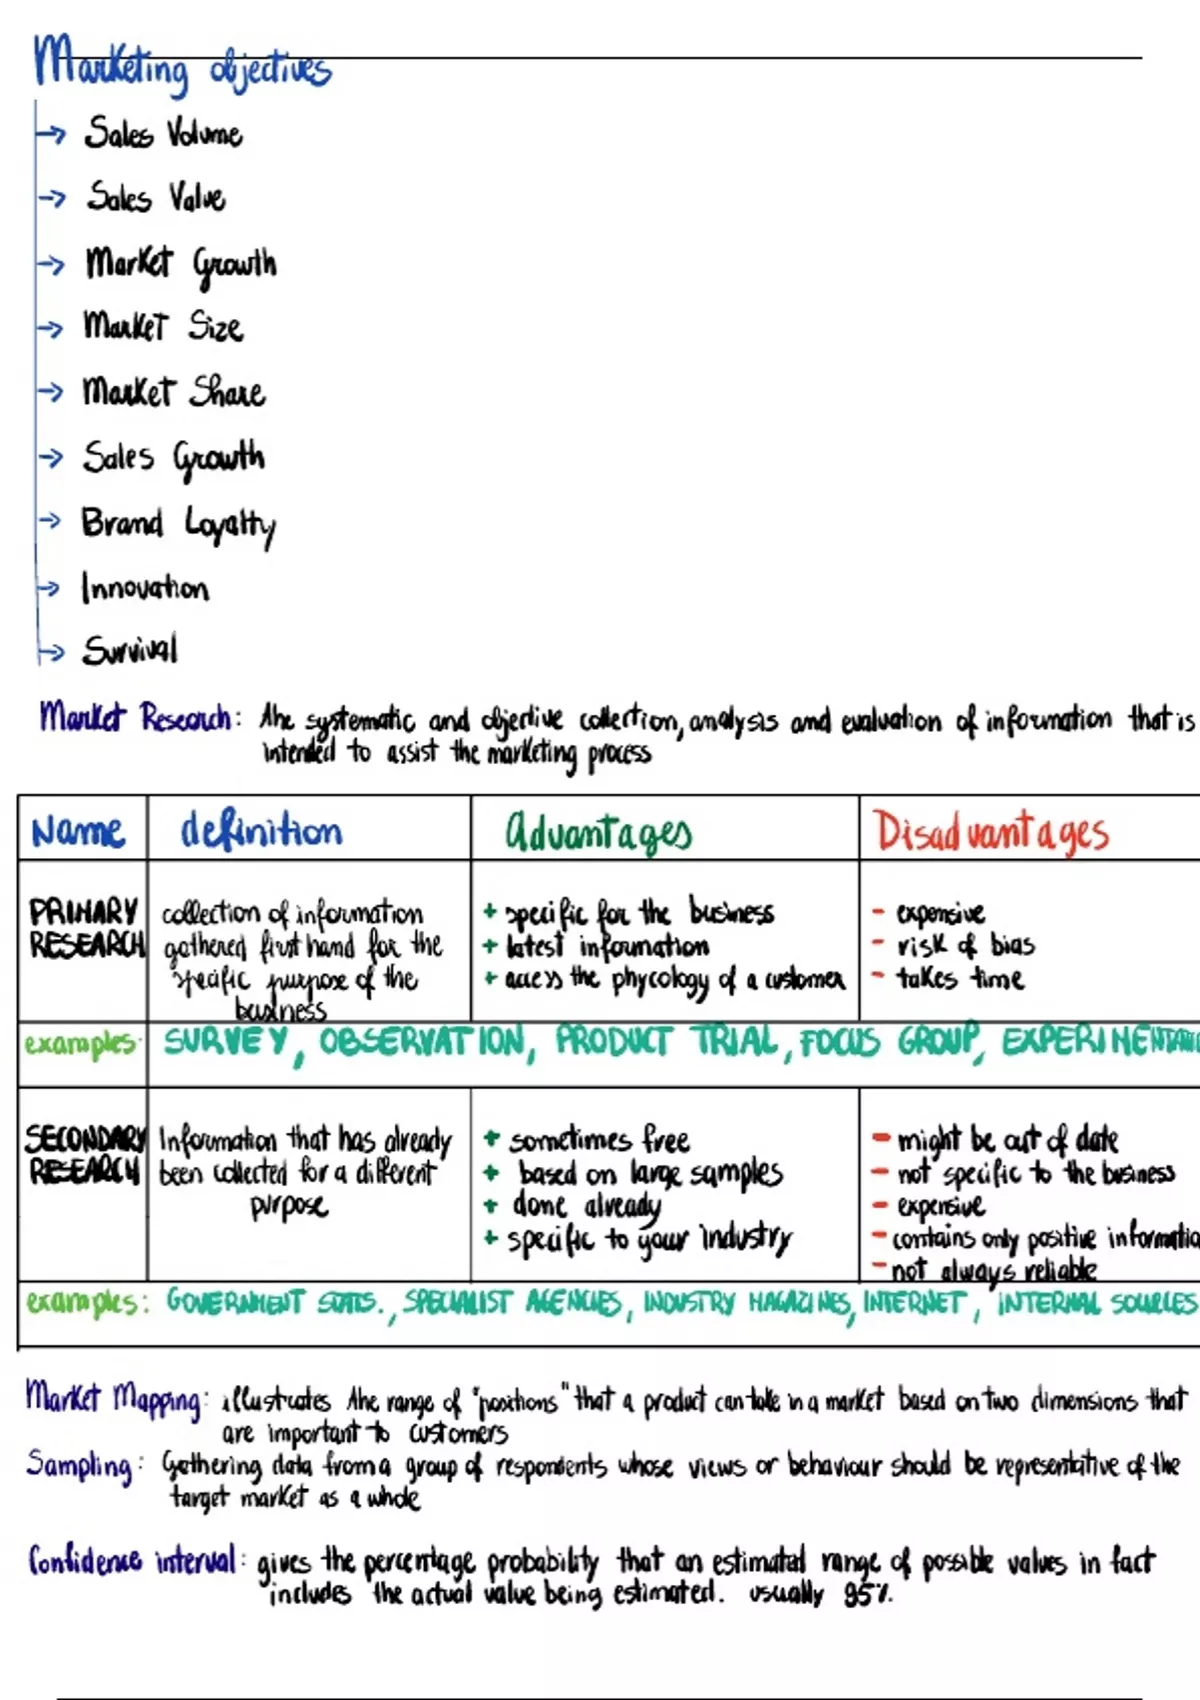 Marketing objectives
→ Sales Volume
→ Sales Value
→ Market Growth
→ Market Size
→ Market Share
→ Sales Growth
→ Brand Loyalty
→ Innovation
→ Survival
Market Research: The systematic and objective collection, analysis and evaluation of information that is
intended to assist the marketing process
Name definition Advantages Disadvantages
PRIMARY RESEARCH
collection of information
gathered first hand for the
specific purpose of the
business
+ specific for the business
+ latest information
+ access the phycology of a customer
- expensive
- risk of bias
- takes time
examples: SURVEY, OBSERVATION, PRODUCT TRIAL, FOCUS GROUP, EXPERIMENTATI
SECONDARY RESEARCH
Information that has already
been collected for a different
purpose
+ sometimes free
+ based on large samples
+ done already
+ specific to your industry
- might be out of date
- not specific to the business
- expensive
- contains only positive informatio
- not always reliable
examples: GOVERNMENT STATS., SPECIALIST AGENCIES, INDUSTRY MAGAZINES, INTERNET, INTERNAL SOURCES
Market Mapping: illustrates the range of "positions" that a product can take in a market based on two dimensions that
are important to customers
Sampling: Gathering data from a group of respondents whose views or behaviour should be representative of the
target market as a whole
Confidence interval: gives the percentage probability that an estimated range of possible values in fact
includes the actual value being estimated. usually 95%.